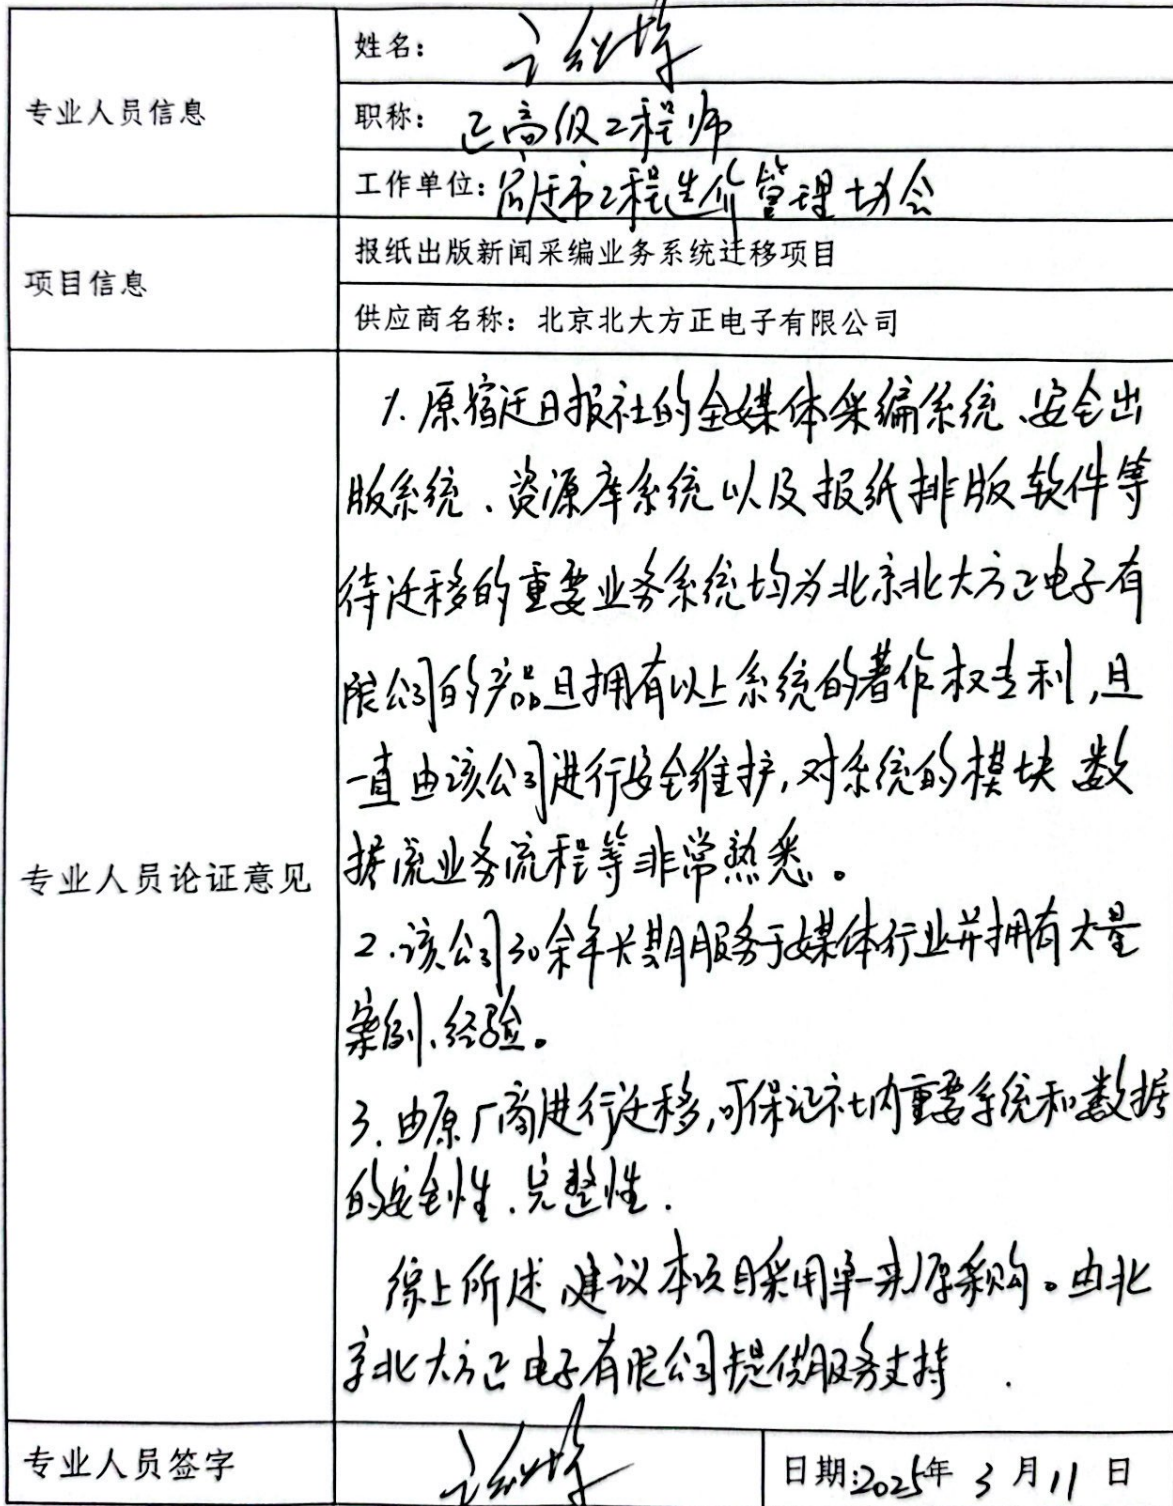 姓名：
专业人员信息
职称：正高级工程师
工作单位：宿迁市工程造价管理协会
项目信息
报纸出版新闻采编业务系统迁移项目
供应商名称：北京北大方正电子有限公司
专业人员论证意见
1.原宿迁日报社的全媒体采编系统、安全出
版系统、资源库系统以及报纸排版软件等
待迁移的重要业务系统均为北京北大方正电子有
限公司的产品且拥有以上系统的著作权专利,且
一直由该公司进行安全维护,对系统的模块数
据流业务流程等非常熟悉。
2.该公司30余年长期服务于媒体行业并拥有大量
案例、经验。
3.由原厂商进行迁移,可保证社内重要系统和数据
的安全性、完整性.
综上所述,建议本项目采用单一来源采购。由北
京北大方正电子有限公司提供服务支持.
专业人员签字
日期:2025年3月11日